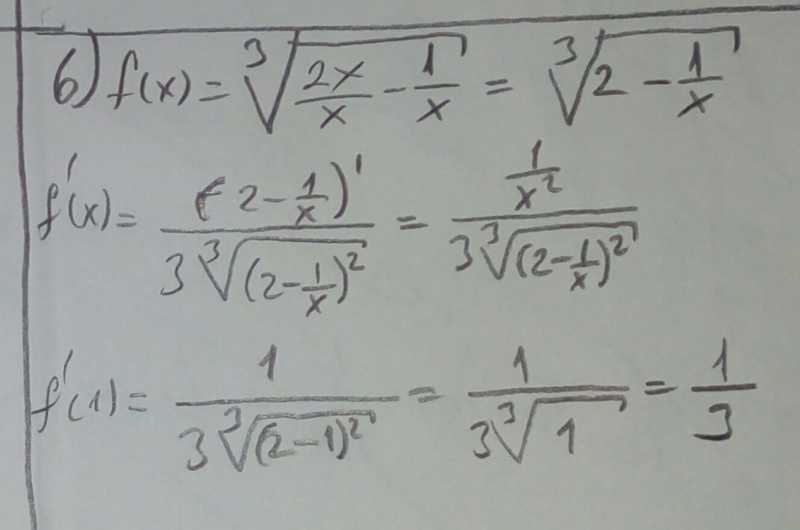 6) f(x) = ∛(2x/x - 1/x) = ∛(2 - 1/x)
f'(x) = (2 - 1/x)' / 3∛((2 - 1/x)²) = (1/x²) / 3∛((2 - 1/x)²)
f'(1) = 1 / 3∛((2-1)²) = 1 / 3∛1 = 1/3